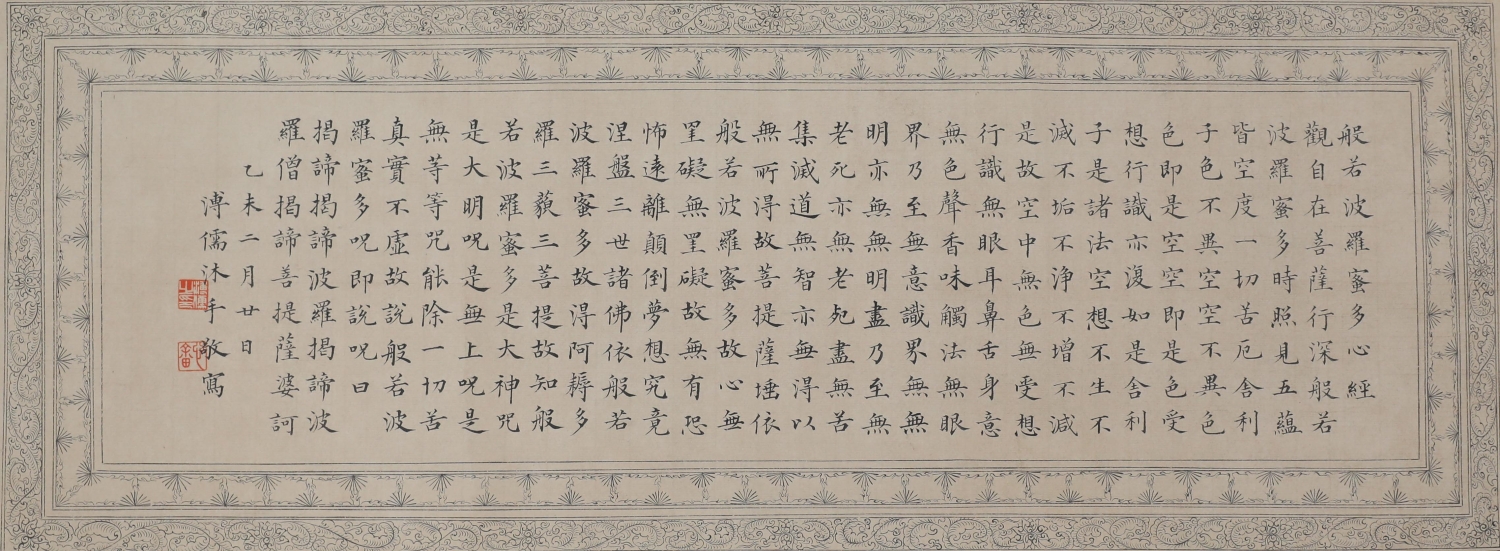 般若波羅蜜多心經
觀自在菩薩行深般若
波羅蜜多時照見五蘊
皆空度一切苦厄舍利
子色不異空空不異色
色即是空空即是色受
想行識亦復如是舍利
子是諸法空想不生不
滅不垢不淨不增不減
是故空中無色無受想
行識無眼耳鼻舌身意
無色聲香味觸法無眼
界乃至無意識界無無
明亦無無明盡乃至無
老死亦無老死盡無苦
集滅道無智亦無得以
無所得故菩提薩埵依
般若波羅蜜多故心無
罣礙無罣礙故無有恐
怖遠離顛倒夢想究竟
涅盤三世諸佛依般若
波羅蜜多故得阿耨多
羅三藐三菩提故知般
若波羅蜜多是大神咒
是大明呪是無上呪是
無等等咒能除一切苦
真實不虛故說般若波
羅蜜多呪即說呪曰
揭諦揭諦波羅揭諦波
羅僧揭諦菩提薩婆訶
乙未二月廿日
溥儒沐手敬寫
溥儒之印
心畬